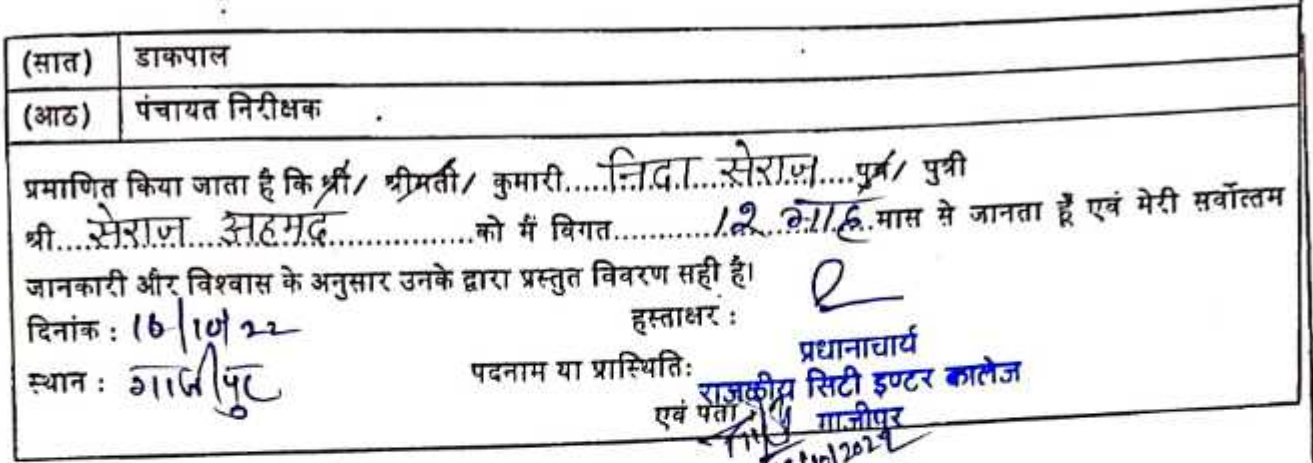 (सात) डाकपाल
(आठ) पंचायत निरीक्षक
प्रमाणित किया जाता है कि श्री/ श्रीमती/ कुमारी.....निदा सेराज....पुत्र/ पुत्री
श्री....सेराज अहमद................को मैं विगत............12 माह मास से जानता हूँ एवं मेरी सर्वोत्तम
जानकारी और विश्वास के अनुसार उनके द्वारा प्रस्तुत विवरण सही है।
दिनांक : 16/10/22 हस्ताक्षर :
प्रधानाचार्य
स्थान : गाजीपुर पदनाम या प्रास्थितिः राजकीय सिटी इण्टर कालेज
एवं पता गाजीपुर